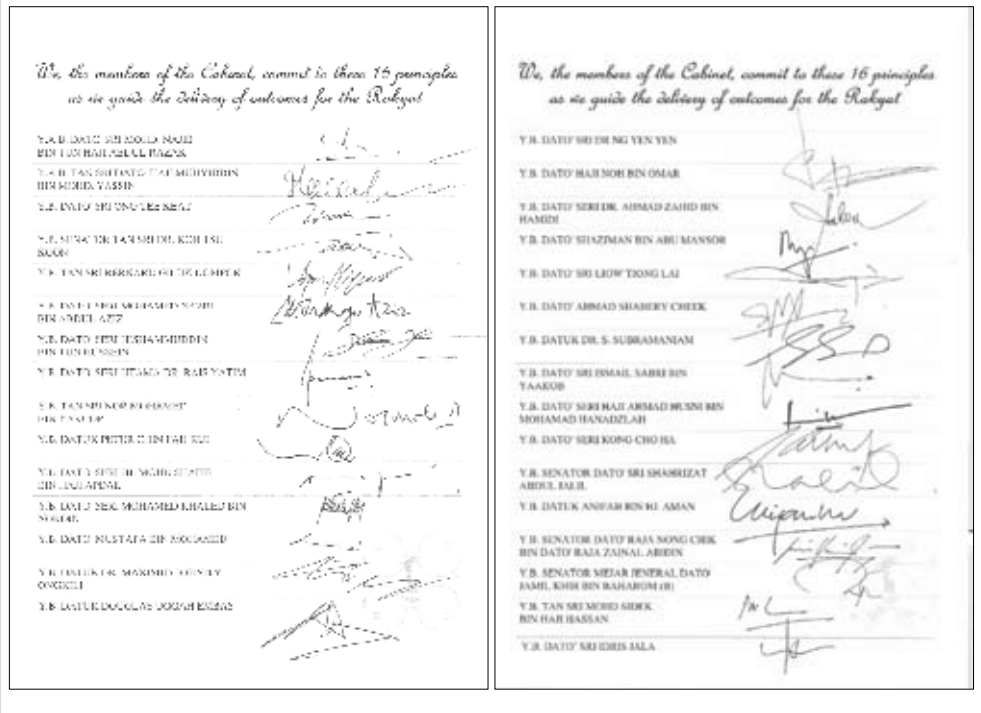 We, the members of the Cabinet, commit to these 16 principles
as we guide the delivery of outcomes for the Rakyat
Y.A.B. DATO' SRI MOHD. NAJIB
BIN TUN HAJI ABDUL RAZAK
Y.A.B. TAN SRI DATO' HAJI MUHYIDDIN
BIN MOHD. YASSIN
Y.B. DATO' SRI ONG TEE KEAT
Y.B. SENATOR TAN SRI DR. KOH TSU
KOON
Y.B. TAN SRI BERNARD GILUK DOMPOK
Y.B. DATO' SERI MOHAMED NAZRI
BIN ABDUL AZIZ
Y.B. DATO' SERI HISHAMMUDDIN
BIN TUN HUSSEIN
Y.B. DATO' SERI UTAMA DR. RAIS YATIM
Y.B. TAN SRI NOR MOHAMED
BIN YAKCOP
Y.B. DATUK PETER CHIN FAH KUI
Y.B. DATO' SERI HJ. MOHD. SHAFIE
BIN HAJI APDAL
Y.B. DATO' SERI MOHAMED KHALED BIN
NORDIN
Y.B. DATO' MUSTAPA BIN MOHAMED
Y.B. DATUK DR. MAXIMUS JOHNITY
ONGKILI
Y.B. DATUK DOUGLAS UGGAH EMBAS
We, the members of the Cabinet, commit to these 16 principles
as we guide the delivery of outcomes for the Rakyat
Y.B. DATO' SRI DR NG YEN YEN
Y.B. DATO' HAJI NOH BIN OMAR
Y.B. DATO' SERI DR. AHMAD ZAHID BIN
HAMIDI
Y.B. DATO' SHAZIMAN BIN ABU MANSOR
Y.B. DATO' SRI LIOW TIONG LAI
Y.B. DATO' AHMAD SHABERY CHEEK
Y.B. DATUK DR. S. SUBRAMANIAM
Y.B. DATO' SRI ISMAIL SABRI BIN
YAAKOB
Y.B. DATO' SERI HAJI AHMAD HUSNI BIN
MOHAMAD HANADZLAH
Y.B. DATO' SERI KONG CHO HA
Y.B. SENATOR DATO' SRI SHAHRIZAT
ABDUL JALIL
Y.B. DATUK ANIFAH BIN HJ. AMAN
Y.B. SENATOR DATO' RAJA NONG CHIK
BIN DATO' RAJA ZAINAL ABIDIN
Y.B. SENATOR MEJAR JENERAL DATO'
JAMIL KHIR BIN BAHAROM (B)
Y.B. TAN SRI MOHD SIDEK
BIN HAJI HASSAN
Y.B. DATO' SRI IDRIS JALA